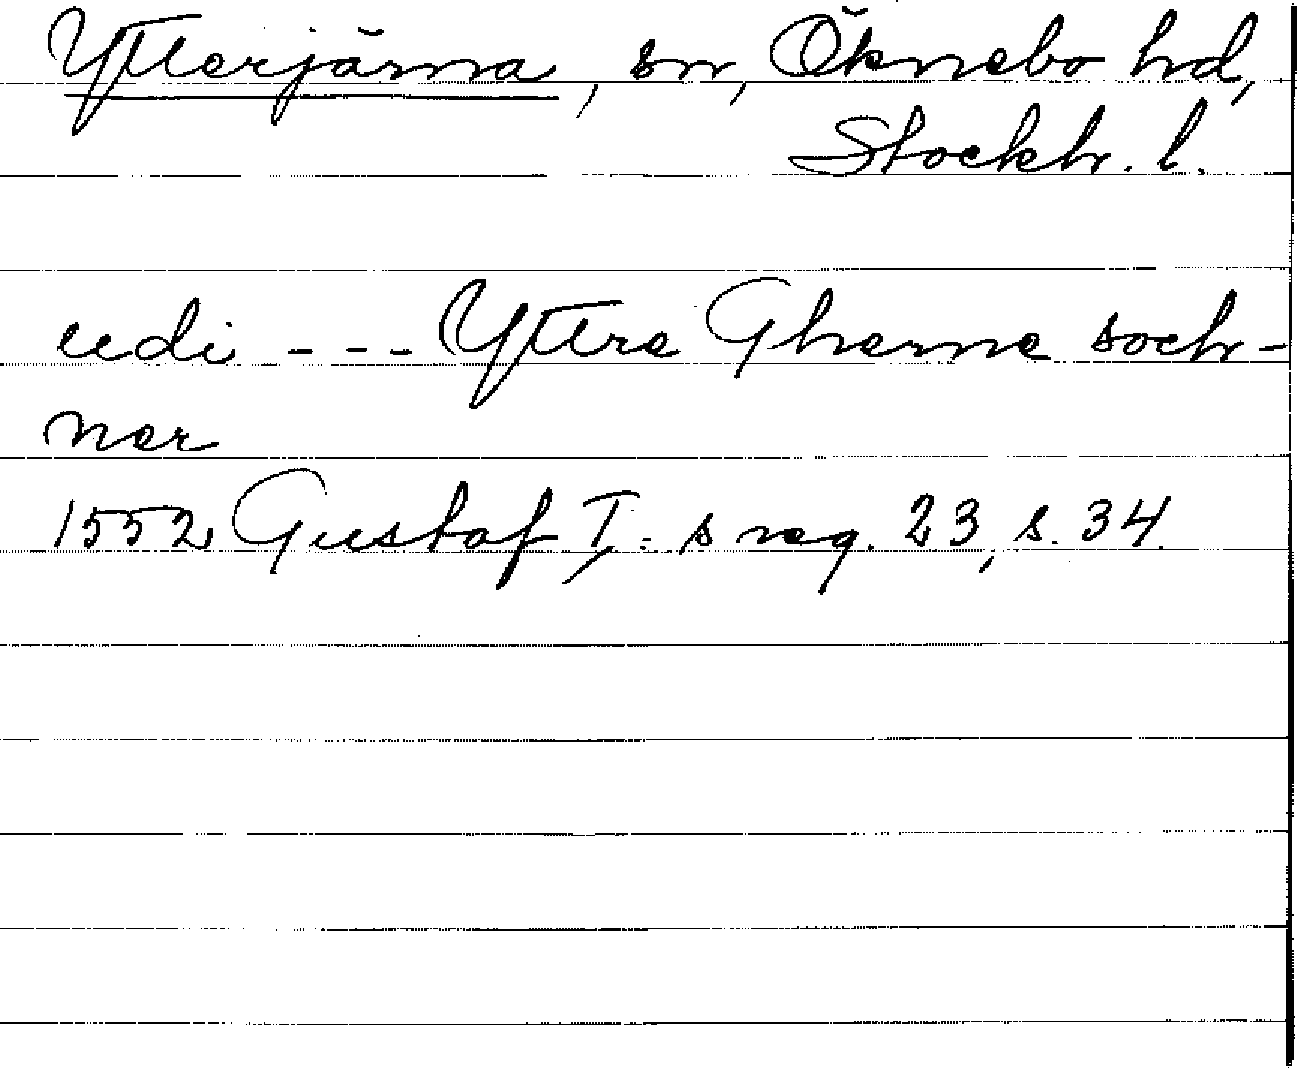 Ytterjärna, sn, Öknebo hd,
Stockh. l.
udi --- Yttre Gherne soch-
ner
1552 Gustaf I:s reg. 23, s. 34.